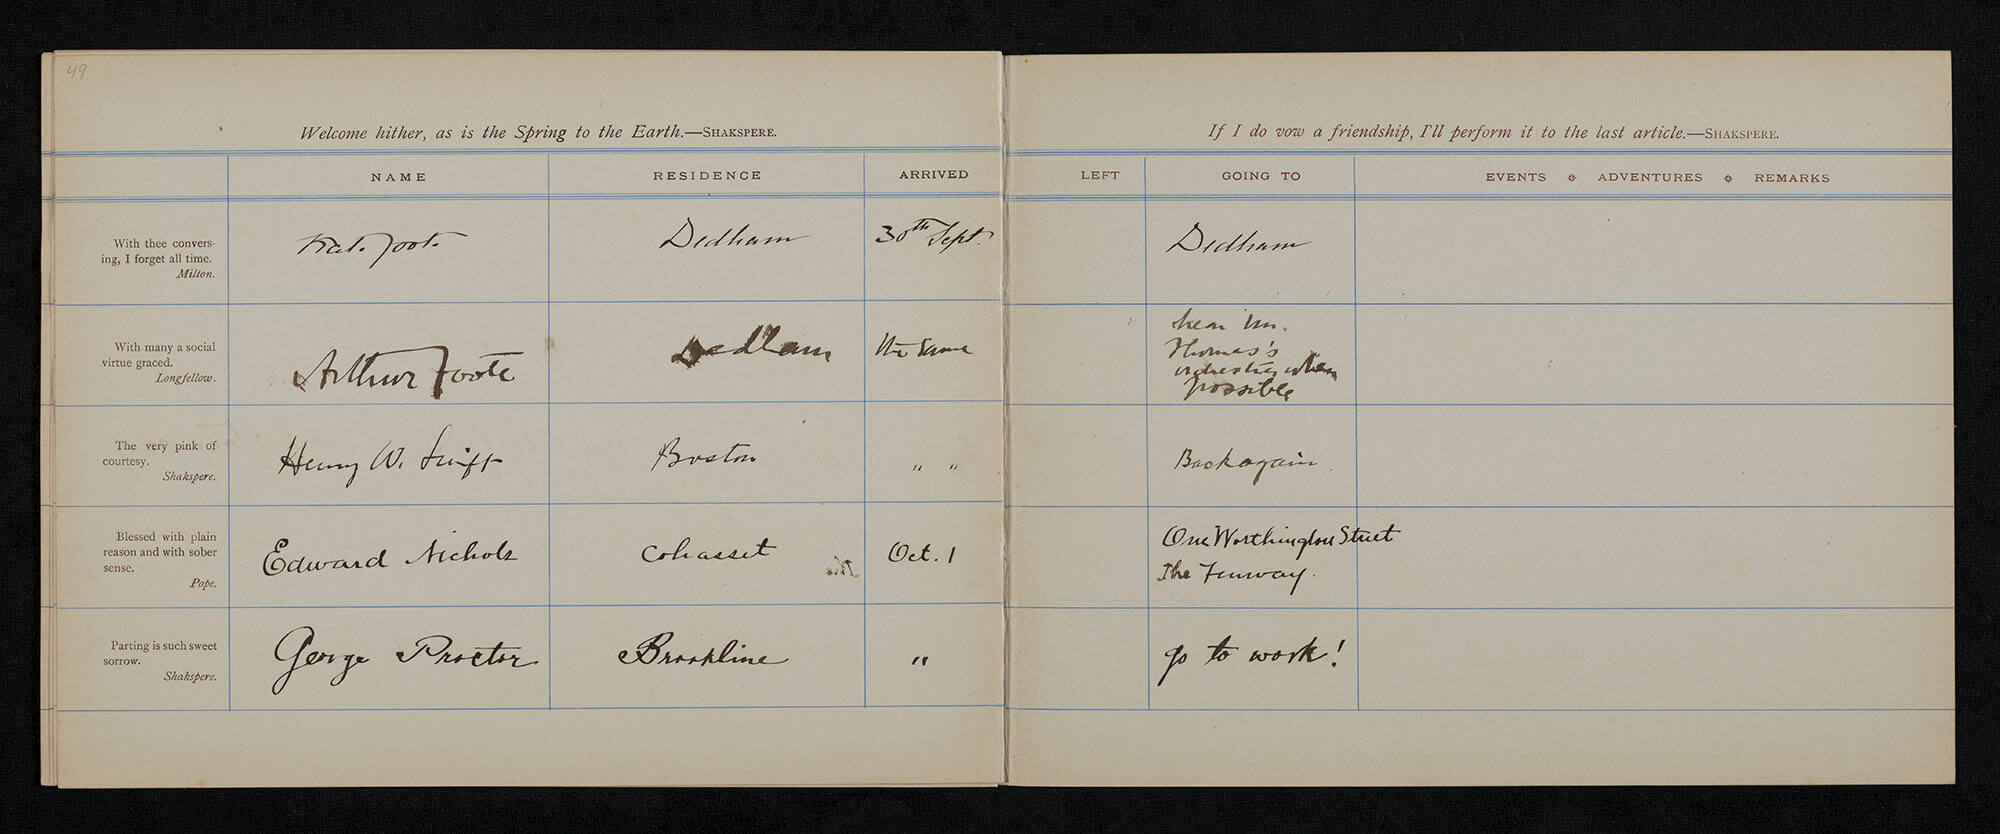 49
Welcome hither, as is the Spring to the Earth.—SHAKSPERE.
NAME RESIDENCE ARRIVED
With thee convers-
ing, I forget all time.
Milton.
Kate Foote Dedham 30th Sept.
With many a social
virtue graced.
Longfellow.
Arthur Foote Dedham the same
The very pink of
courtesy.
Shakspere.
Henry W. Swift Boston " "
Blessed with plain
reason and with sober
sense.
Pope.
Edward Nichols Cohasset Oct. 1
Parting is such sweet
sorrow.
Shakspere.
George Proctor Brookline "
If I do vow a friendship, I'll perform it to the last article.—SHAKSPERE.
LEFT GOING TO EVENTS ADVENTURES REMARKS
Dedham
hear Mr.
Thomas's
orchestra when
possible
Back again.
One Worthington Street
The Fenway.
go to work!